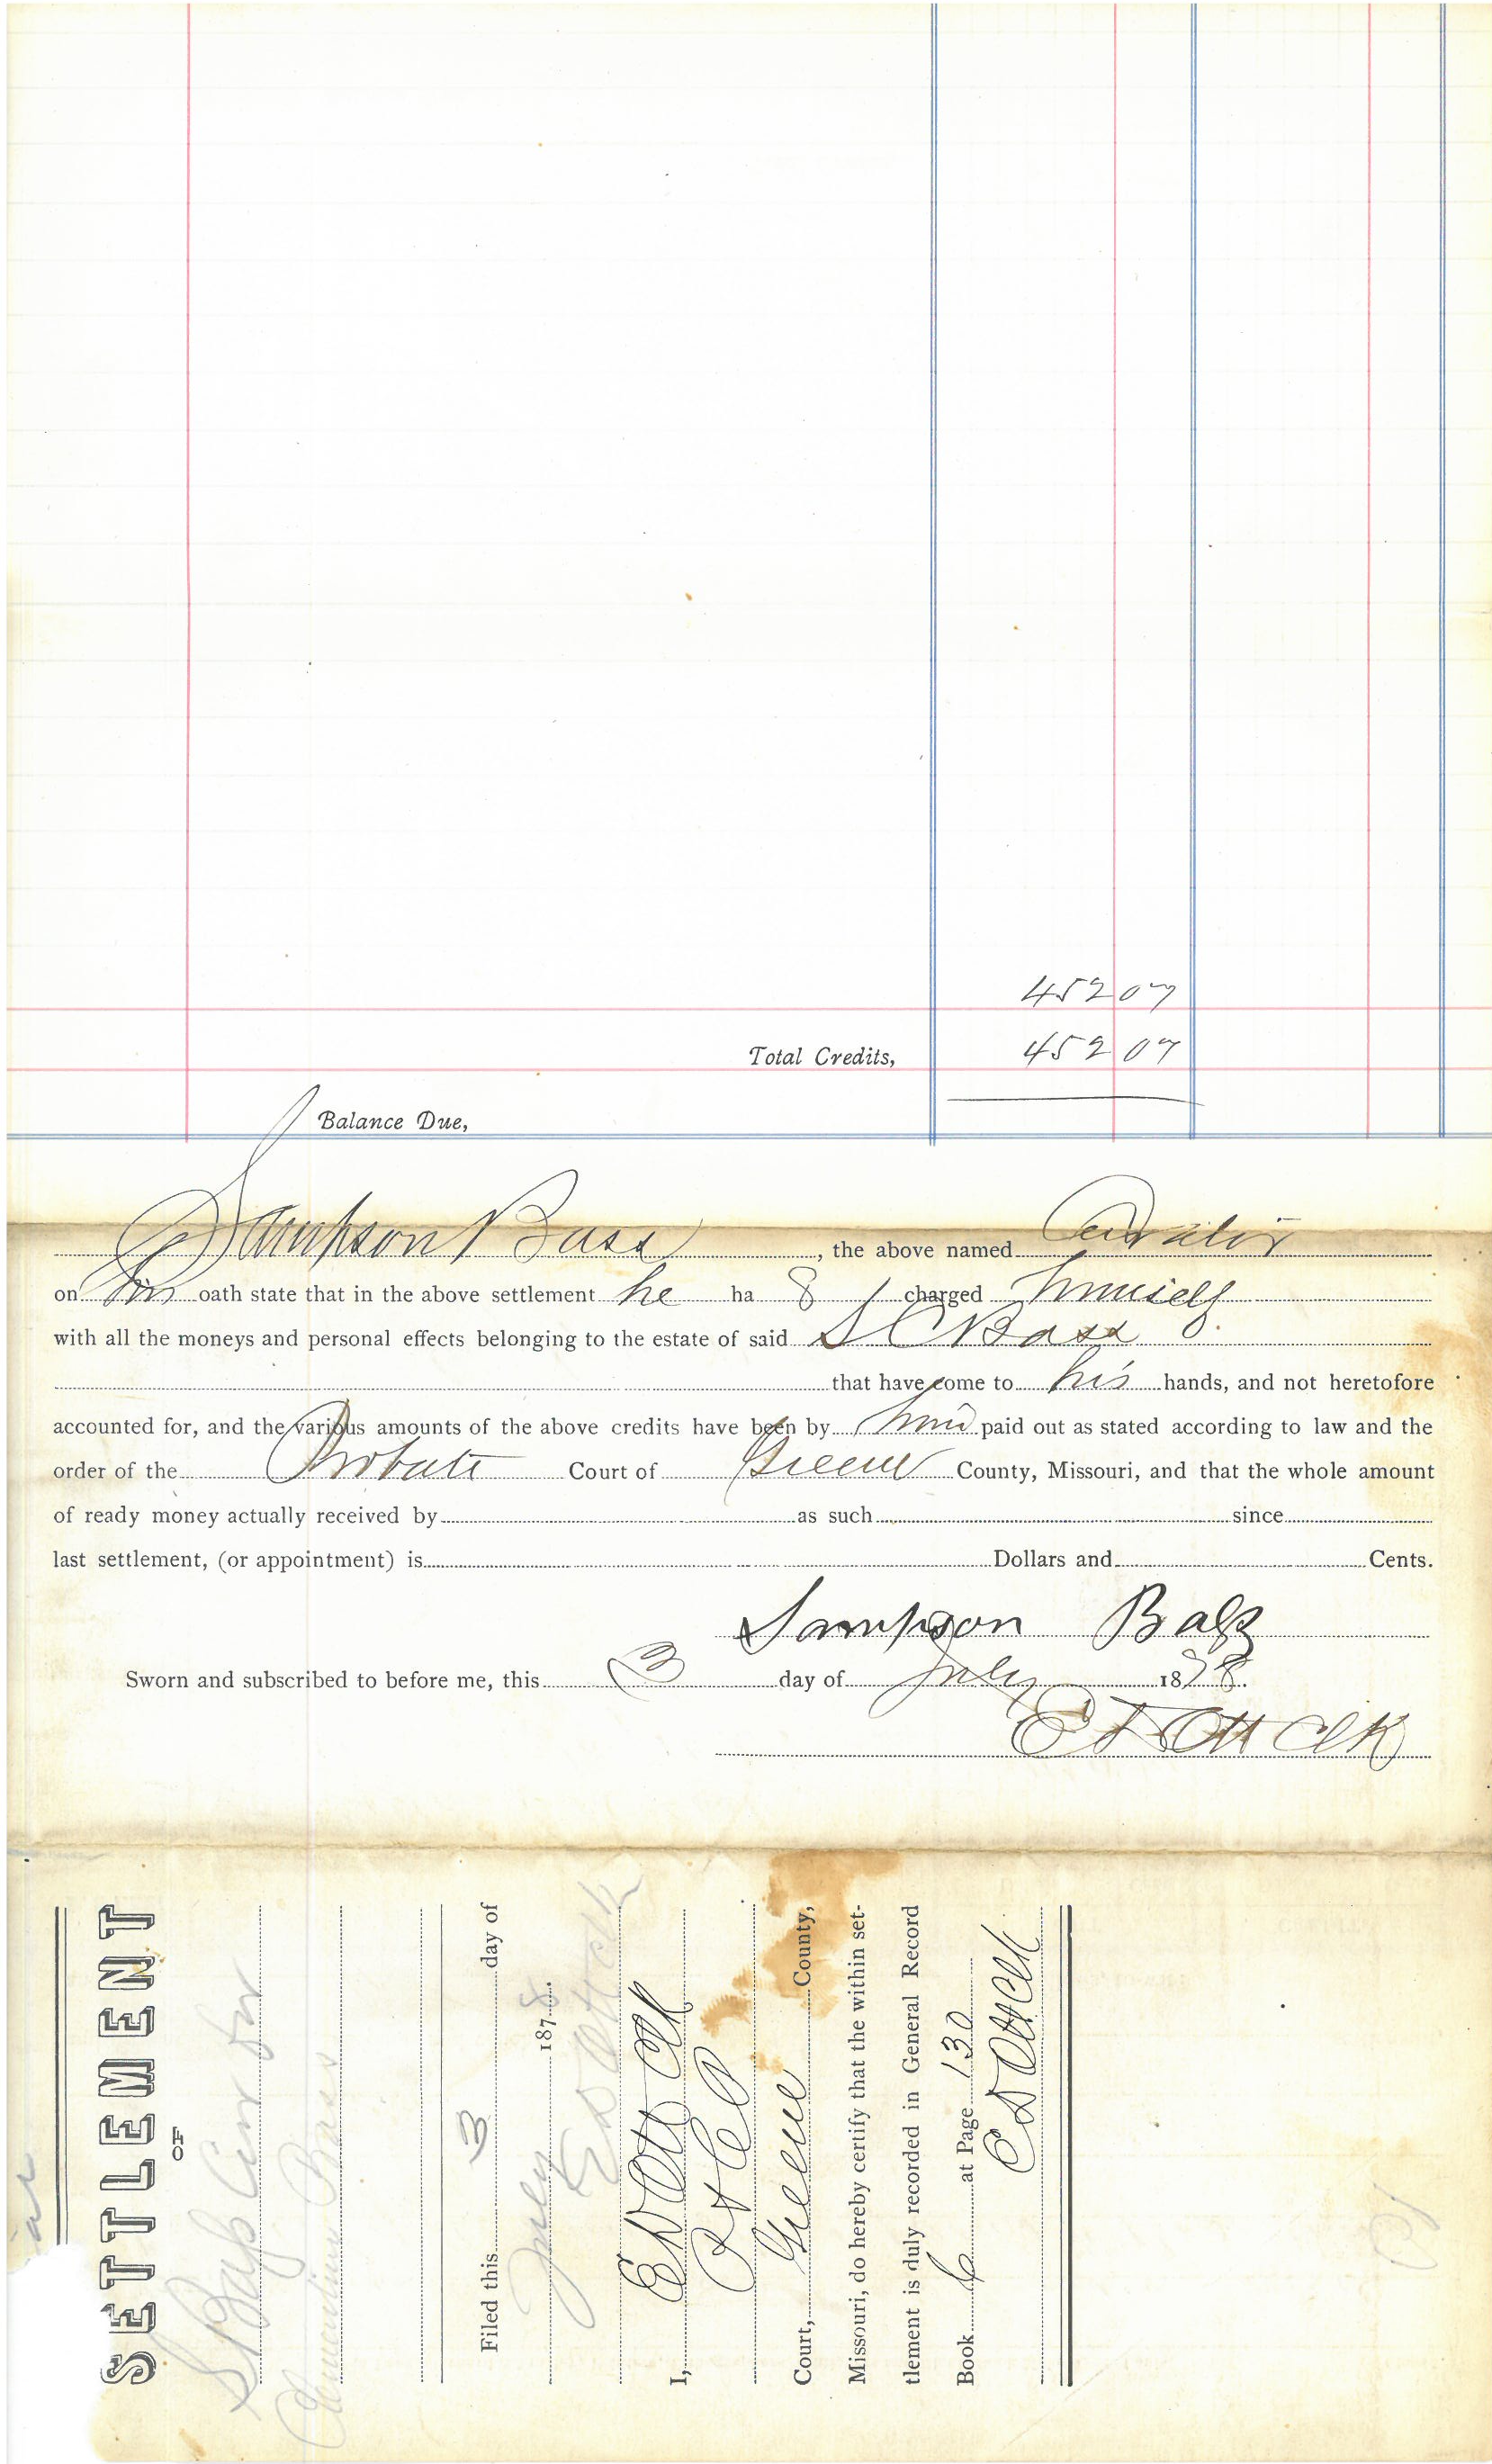 452 07
Total Credits, 452 07
Balance Due,
Sampson Bass, the above named Curator
on his oath state that in the above settlement he ha s charged himself
with all the moneys and personal effects belonging to the estate of said S C Bass
that have come to his hands, and not heretofore
accounted for, and the various amounts of the above credits have been by him paid out as stated according to law and the
order of the Probate Court of Greene County, Missouri, and that the whole amount
of ready money actually received by as such since
last settlement, (or appointment) is Dollars and Cents.
Sampson Bass
Sworn and subscribed to before me, this 3 day of July 1878.
E D Ott Clk
SETTLEMENT
OF
S Bass Cur for
Bass
Filed this 3 day of
July 1878.
E D Ott Clk
I, E D Ott Clk
Court, Greene County,
Missouri, do hereby certify that the within set-
tlement is duly recorded in General Record
Book 6 at Page 130
E D Ott Clk